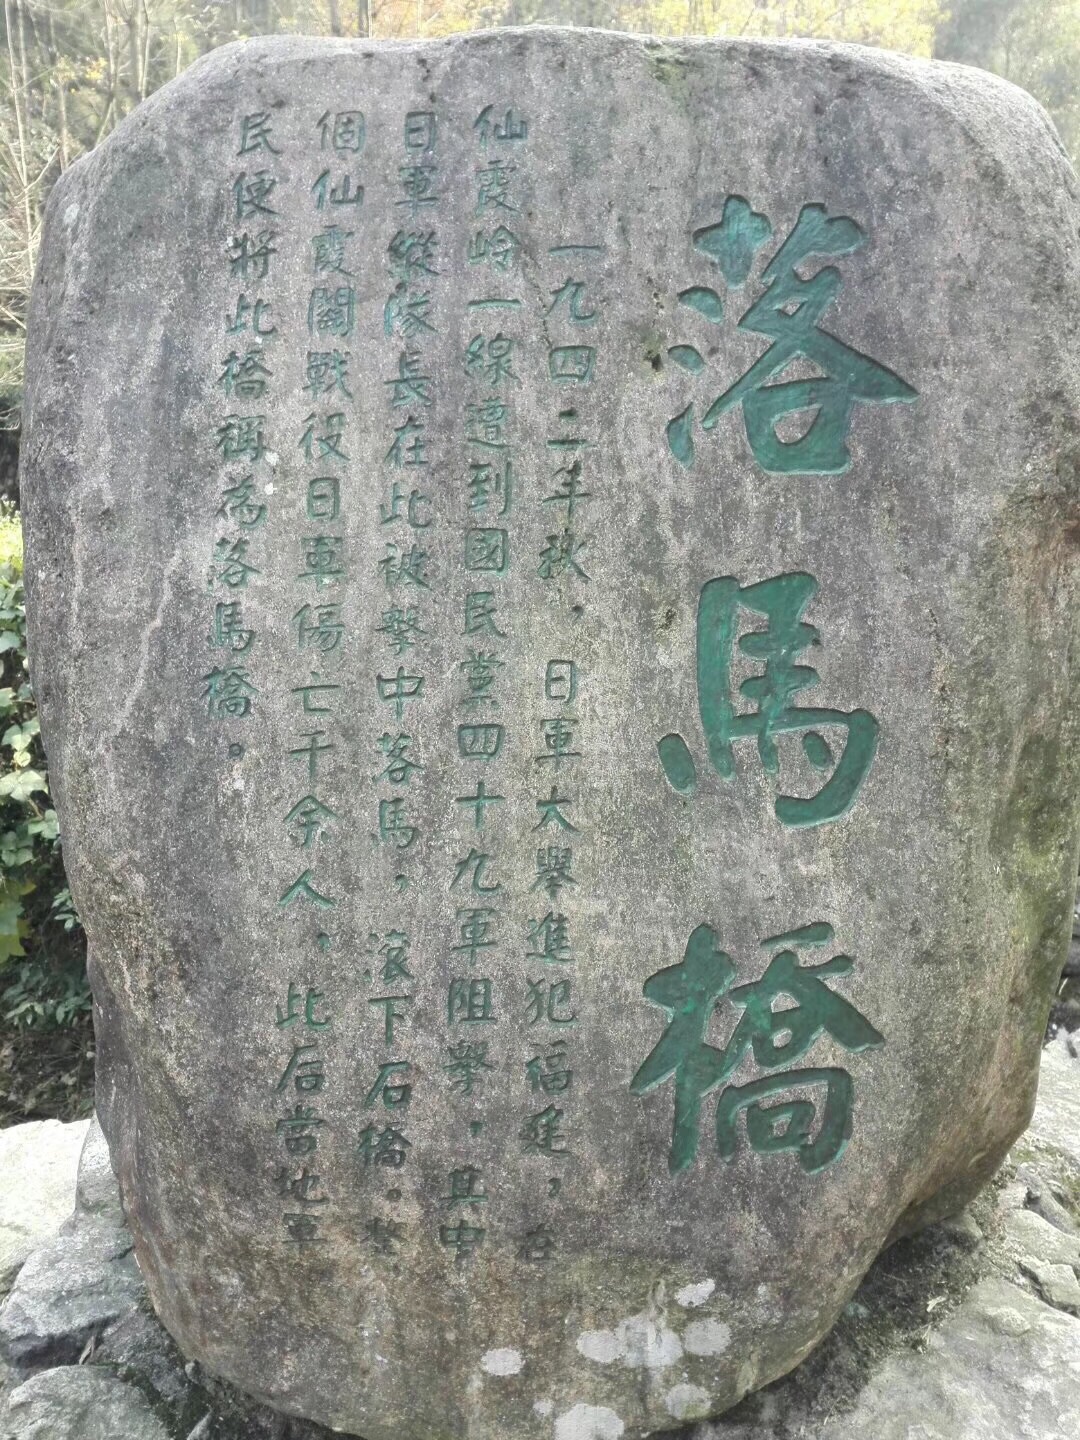 落馬橋
一九四二年秋，日軍大舉進犯福建，在
仙霞岭一線遭到國民黨四十九軍阻擊，其中
日軍縱隊長在此被擊中落馬，滚下石橋。整
個仙霞關戰役日軍傷亡千余人，此后當地軍
民便將此橋稱為落馬橋。